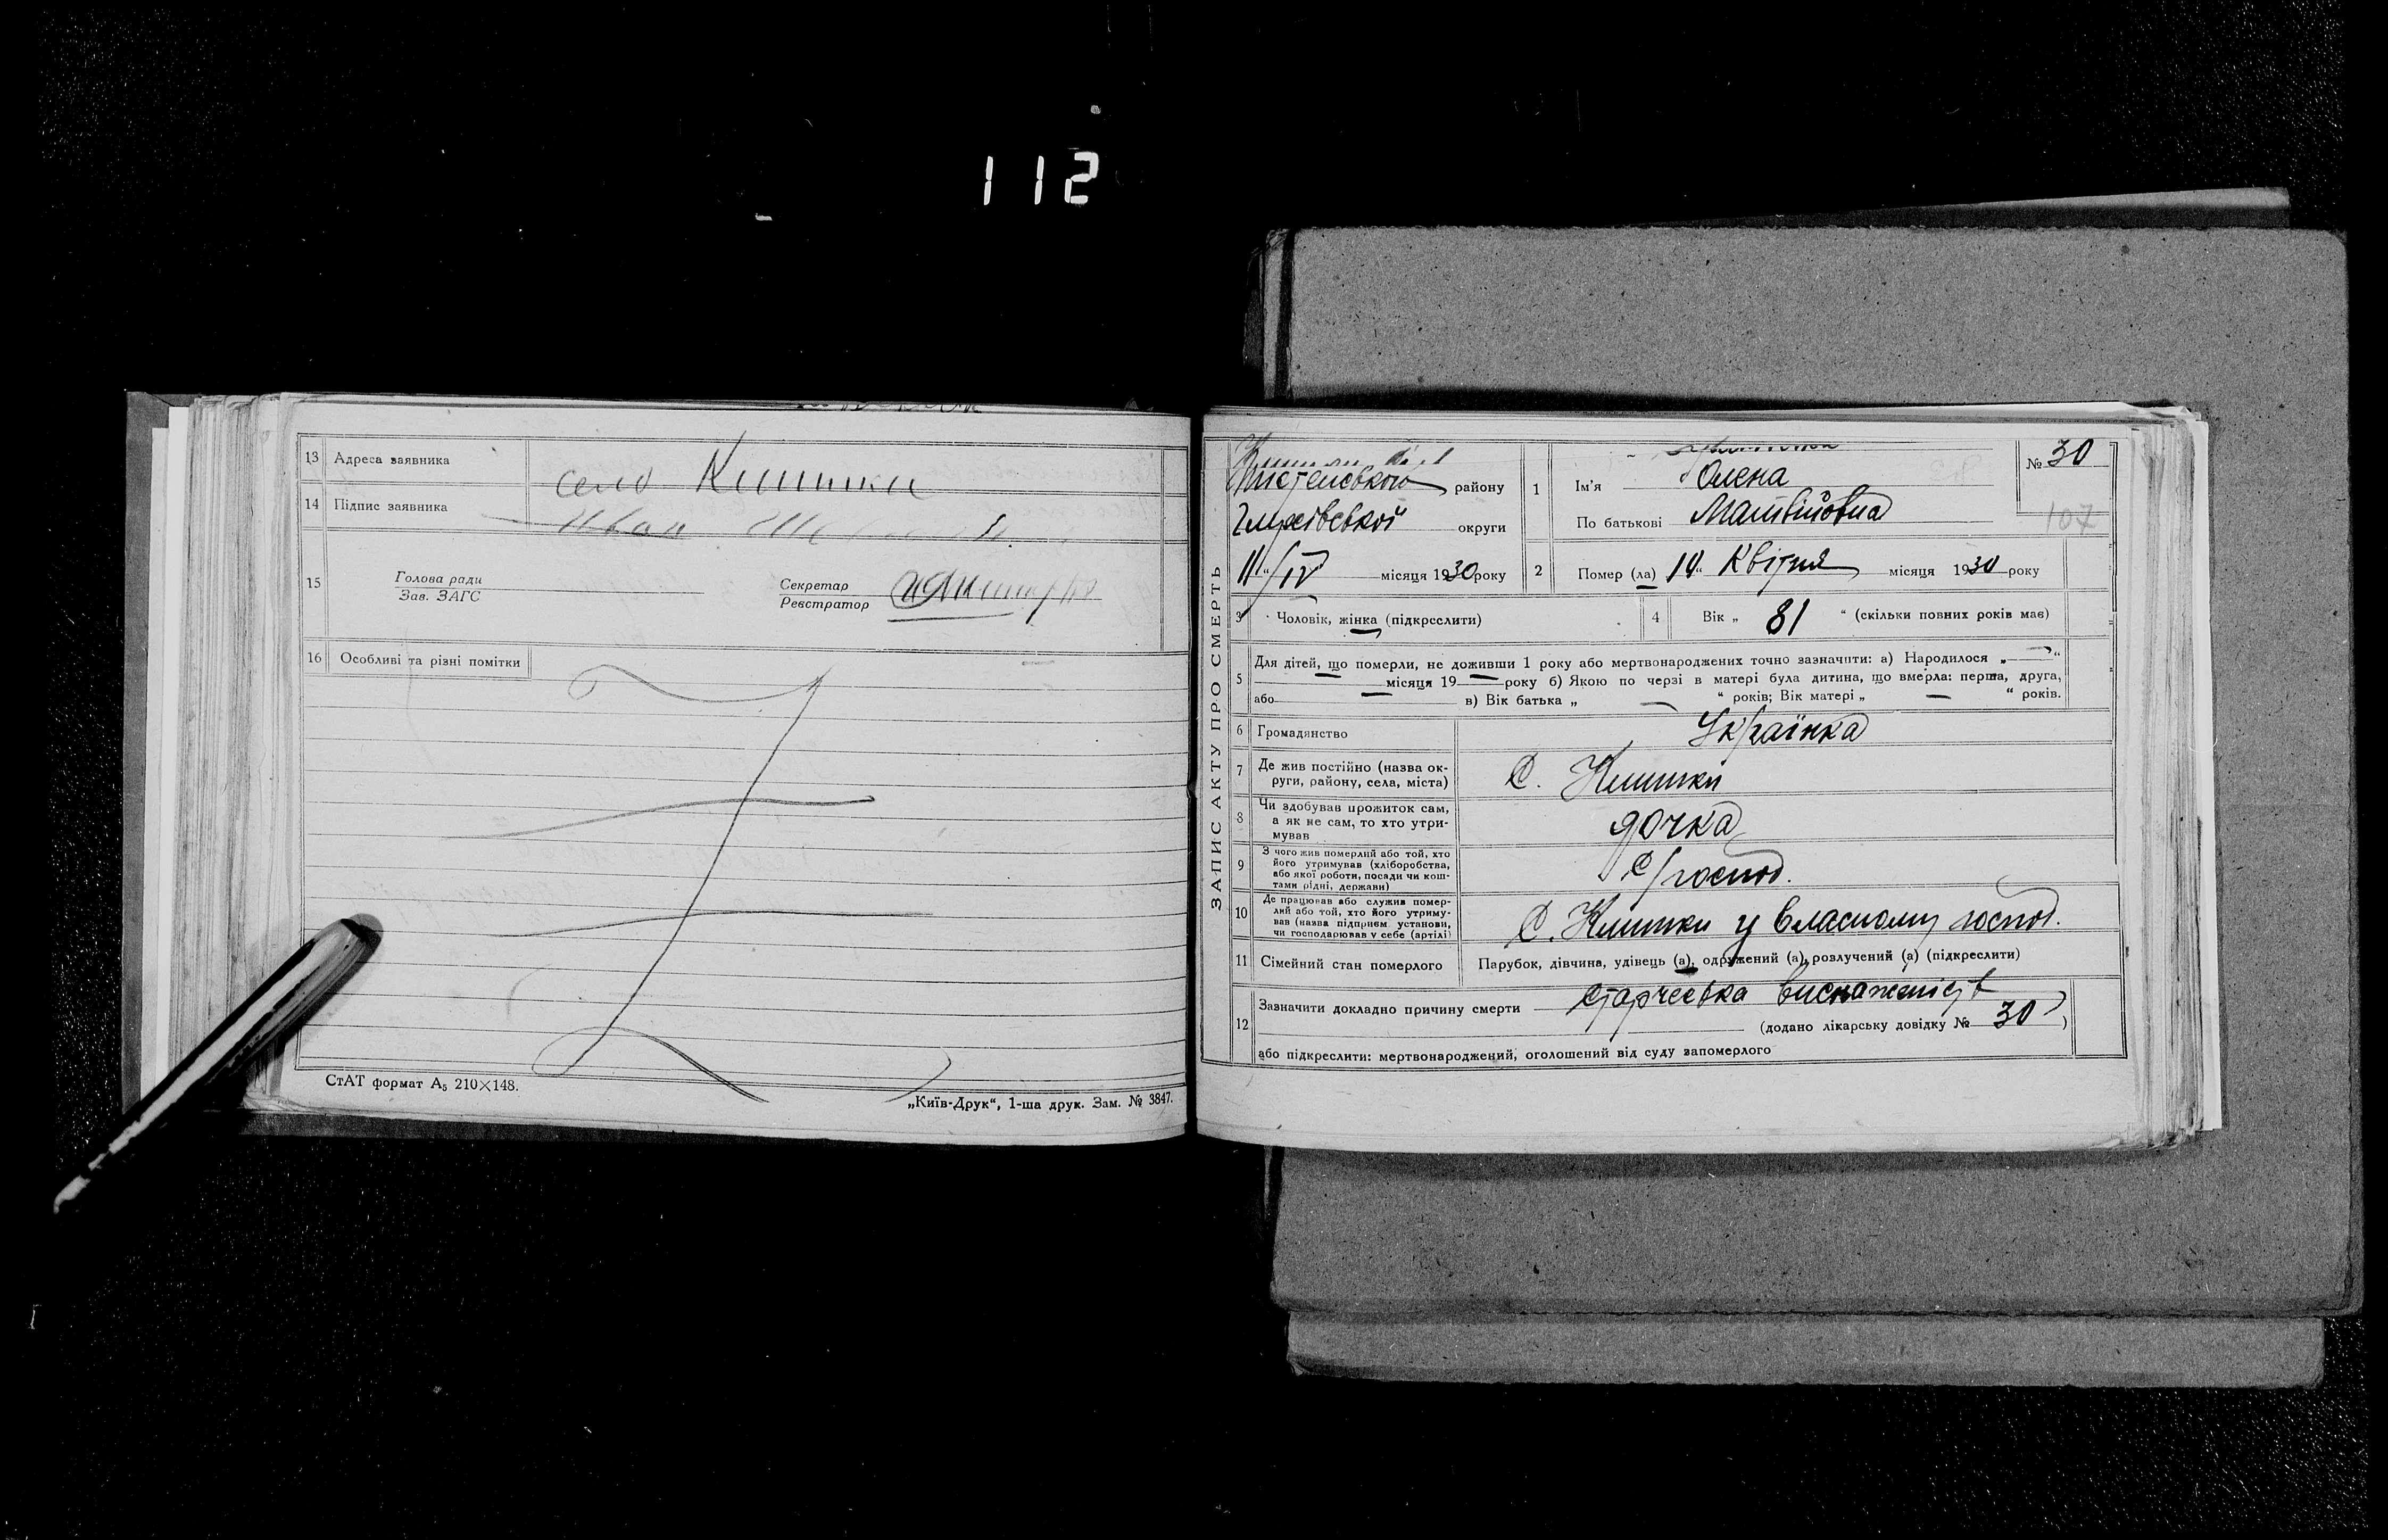 112
13 Адреса заявника село Клишки
14 Підпис заявника Иван
15 Голова ради
Зав. ЗАГС
Секретар
Реєстратор
16 Особливі та різні помітки
СтАТ формат А5 210×148.
„Київ-Друк“, 1-ша друк. Зам. № 3847.
ЗАПИС АКТУ ПРО СМЕРТЬ
району
Глухівської округи
11“/IV місяця 1930 року
№ 30
107
1 Ім’я Олена
По батькові Матвійовна
2 Помер (ла) 10“ Квітня місяця 1930 року
3 Чоловік, жінка (підкреслити)
4 Вік „ 81 “ (скільки повних років має)
5 Для дітей, що померли, не доживши 1 року або мертвонароджених точно зазначити: а) Народилося „—“
місяця 19—року б) Якою по черзі в матері була дитина, що вмерла: перша, друга,
або— в) Вік батька „ — “ років; Вік матері „ — “ років.
6 Громадянство Українка
7 Де жив постійно (назва ок-
руги, району, села, міста) С. Клишки
8 Чи здобував прожиток сам,
а як не сам, то хто утри-
мував дочка
9 З чого жив померлий або той, хто
його утримував (хліборобства,
або якої роботи, посади чи кош-
тами рідні, держави) С/господ.
10 Де працював або служив помер-
лий або той, хто його утриму-
вав (назва підприєм. установи,
чи господарював у себе (артілі) С. Клишки у власному господ.
11 Сімейний стан померлого Парубок, дівчина, удівець (а), одружений (а), розлучений (а) (підкреслити)
12 Зазначити докладно причину смерти старчеська виснаженість
(додано лікарську довідку № 30)
або підкреслити: мертвонароджений, оголошений від суду запомерлого